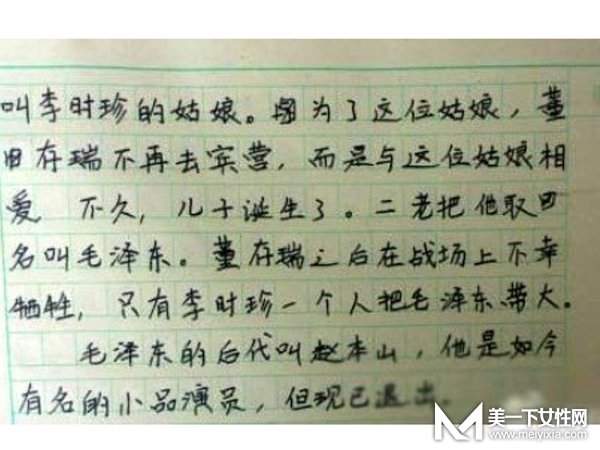 叫李时珍的姑娘。因为了这位姑娘，董
存瑞不再去宾营，而是与这位姑娘相
爱 不久，儿子诞生了。二老把他取
名叫毛泽东。董存瑞之后在战场上不幸
牺牲，只有李时珍一个人把毛泽东带大。
毛泽东的后代叫赵本山，他是如今
有名的小品演员，但现已退出
美一下女性网
www.meiyixia.com